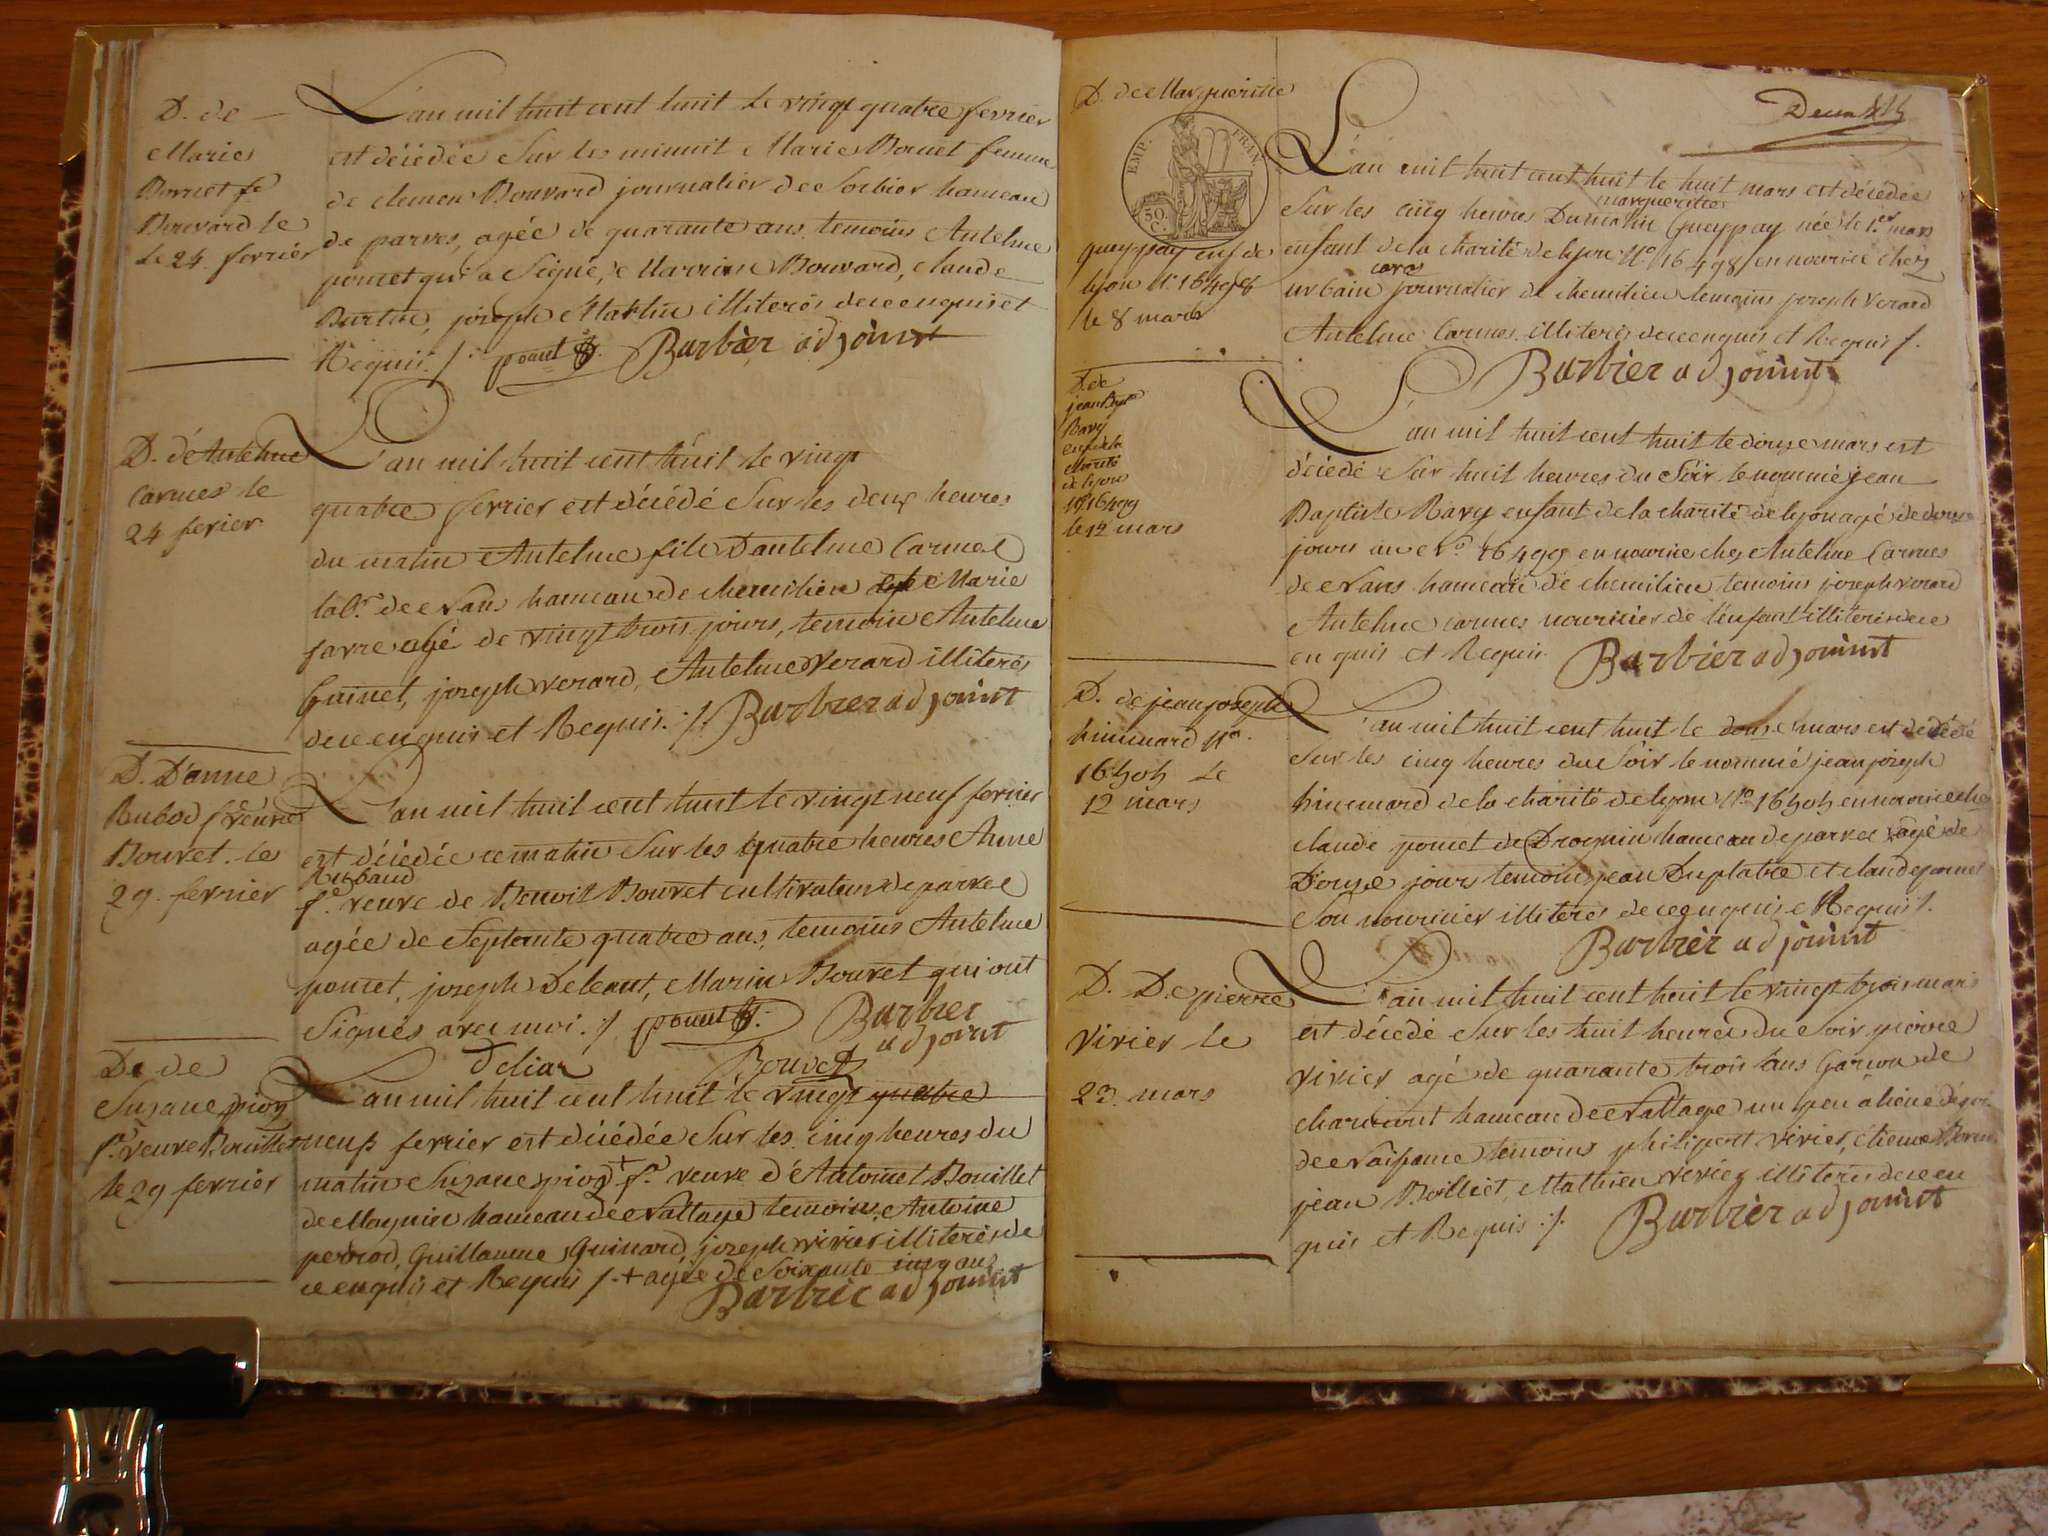 D. de
Marie
Borret fe
Bouvard le
le 24. fevrier
L'an mil huit cent huit le vingt quatre fevrier
est décédée sur les minuit Marie Borret femme
de clement Bouvard journalier de Sorbier hameau
de parves, agée de quarante ans, temoins Antelme
poncet qui a signé, Bouvard, claude
Burtin, joseph Martin illiterés de ce enquis et
Requis ./. poncet Barbier adjoinct
D. d'Antelme
Carmes le
24 fevier
L'an mil huit cent huit le vingt
quatre fevrier est décédé sur les deux heures
du matin Antelme fils D'antelme Carmes
labr. de Nans hameau de chemilieu Marie
favre agé de vingt trois jours, temoin Antelme
Guinet, joseph verard, Antelme verard illiterés
de ce enquis et Requis ./. Barbier adjoinct
D. D'anne
Rubod fe veuve
Bouvet. le
29. fevrier
L'an mil huit cent huit le vingt neuf fevrier
est décédée ce matin sur les quatre heures Anne
Rubaud
fe. veuve de Benoit Bouvet cultivateur de parves
agée de Septante quatre ans, temoins Antelme
poncet, joseph Deleant, Marin Bouvet qui ont
Signés avec moi ./. poncet Barbier
adjoinct
deliar Bouvet
De de
Suzane pioz
fe. veuve Bouillet
le 29 fevrier
L'an mil huit cent huit le vingt quatre
neuf fevrier est décédée sur les cinq heures du
matin Suzane pioz + fe. veuve d'Antoine Bouillet
de Magnin hameau de Nattage temoins, Antoine
perrod, Guillaume Guinard, joseph vivier illiterés de
ce enquis et Requis ./. + agée de Soixante cinq ans
Barbier adjoinct
D. de Margueritte
EMP. FRAN.
50. C.
gueypay enf de
lyon N. 16498
le 8 mars
L'an mil huit cent huit le huit mars est décédée
marguerite
Sur les cinq heures Du matin Gueypay née le 1er mars
enfant de la charité de lyon No. 16498 en nourice chez
urbain journalier de chemilieu temoins joseph verard
Antelme Carmes illiterés de ce enquis et Requis ./.
Barbier adjoinct
D. de
jean Bpte
Bavy
enf de la
charité
de lyon
No 16499
le 12 mars
L'an mil huit cent huit le douze mars est
décédé sur huit heures du Soir le nommé jean
Baptiste Ravy enfant de la charité de lyon agé de douze
jours au No. 16499 en nourice chez Antelme Carmes
de Nans hameau de chemilieu temoins joseph verard
Antelme carmes nouricier de l'enfant illiterés de ce
enquis et Requis Barbier adjoinct
D. de jean joseph
hinnard No.
16505 Le
12 mars
L'an mil huit cent huit le douze mars est décédé
Sur les cinq heures du Soir le nommé jean joseph
de la charité de lyon No. 16505 en nourice chez
claude poncet de Drognin hameau de parves agé de
Douze jours temoins jean Duplatre et claude poncet
Son nouricier illiterés de ce enquis et Requis ./.
Barbier adjoinct
D. De pierre
vivier le
23. mars
L'an mil huit cent huit le vingt trois mars
est décedé sur les huit heures du Soir pierre
vivier agé de quarante trois ans Garcon de
hameau de Nattage un peu
temoins philipert vivier, étienne
jean Bolliet, Mathieu vivier illiterés de ce en
quis et Requis ./. Barbier adjoinct